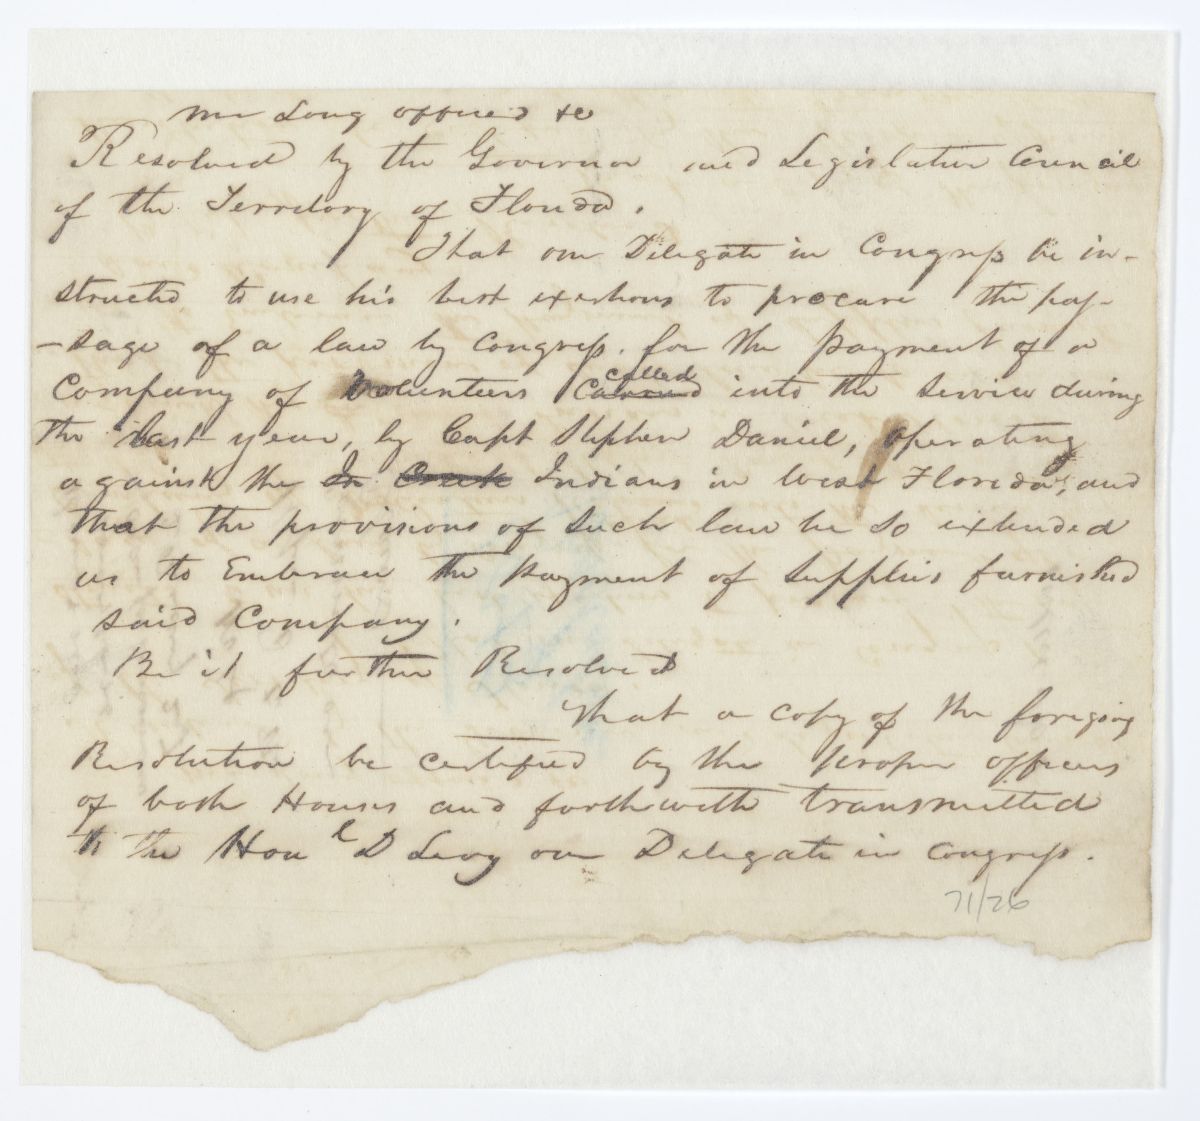 Mr Long offered &c
Resolved by the Governor and Legislative Council
of the Territory of Florida.
That our Delegate in Congress be in-
structed to use his best exertions to procure the pas-
-sage of a law by Congress. for the payment of a
called
Company of Volunteers into the service during
the last year, by Capt Stephen Daniel, operating
against the In Creek Indians in West Florida, and
that the provisions of such law be so extended
as to Embrace the payment of supplies furnished
said Company.
Be it further Resolved
That a copy of the foregoing
Resolution be certified by the proper officers
of both Houses and forthwith transmitted
to the Honl D Levy our Delegate in Congress.
71/26